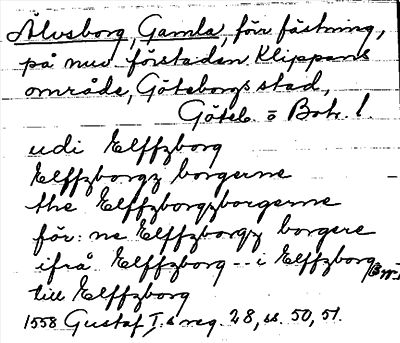 Älvsborg, Gamla, förr fästning,
på nuv. förstaden Klippans
område, Göteborgs stad,
Göteb. o Boh. l.
udi Elffzborg
Elffzborgz borgerne
the Elffzborgzborgerne
för: ne Elffzborgz borgere
ifrå Elffzborg -- i Elffzborg
till Elffzborg
1558 Gustaf I.s reg. 28, ss. 50, 51.